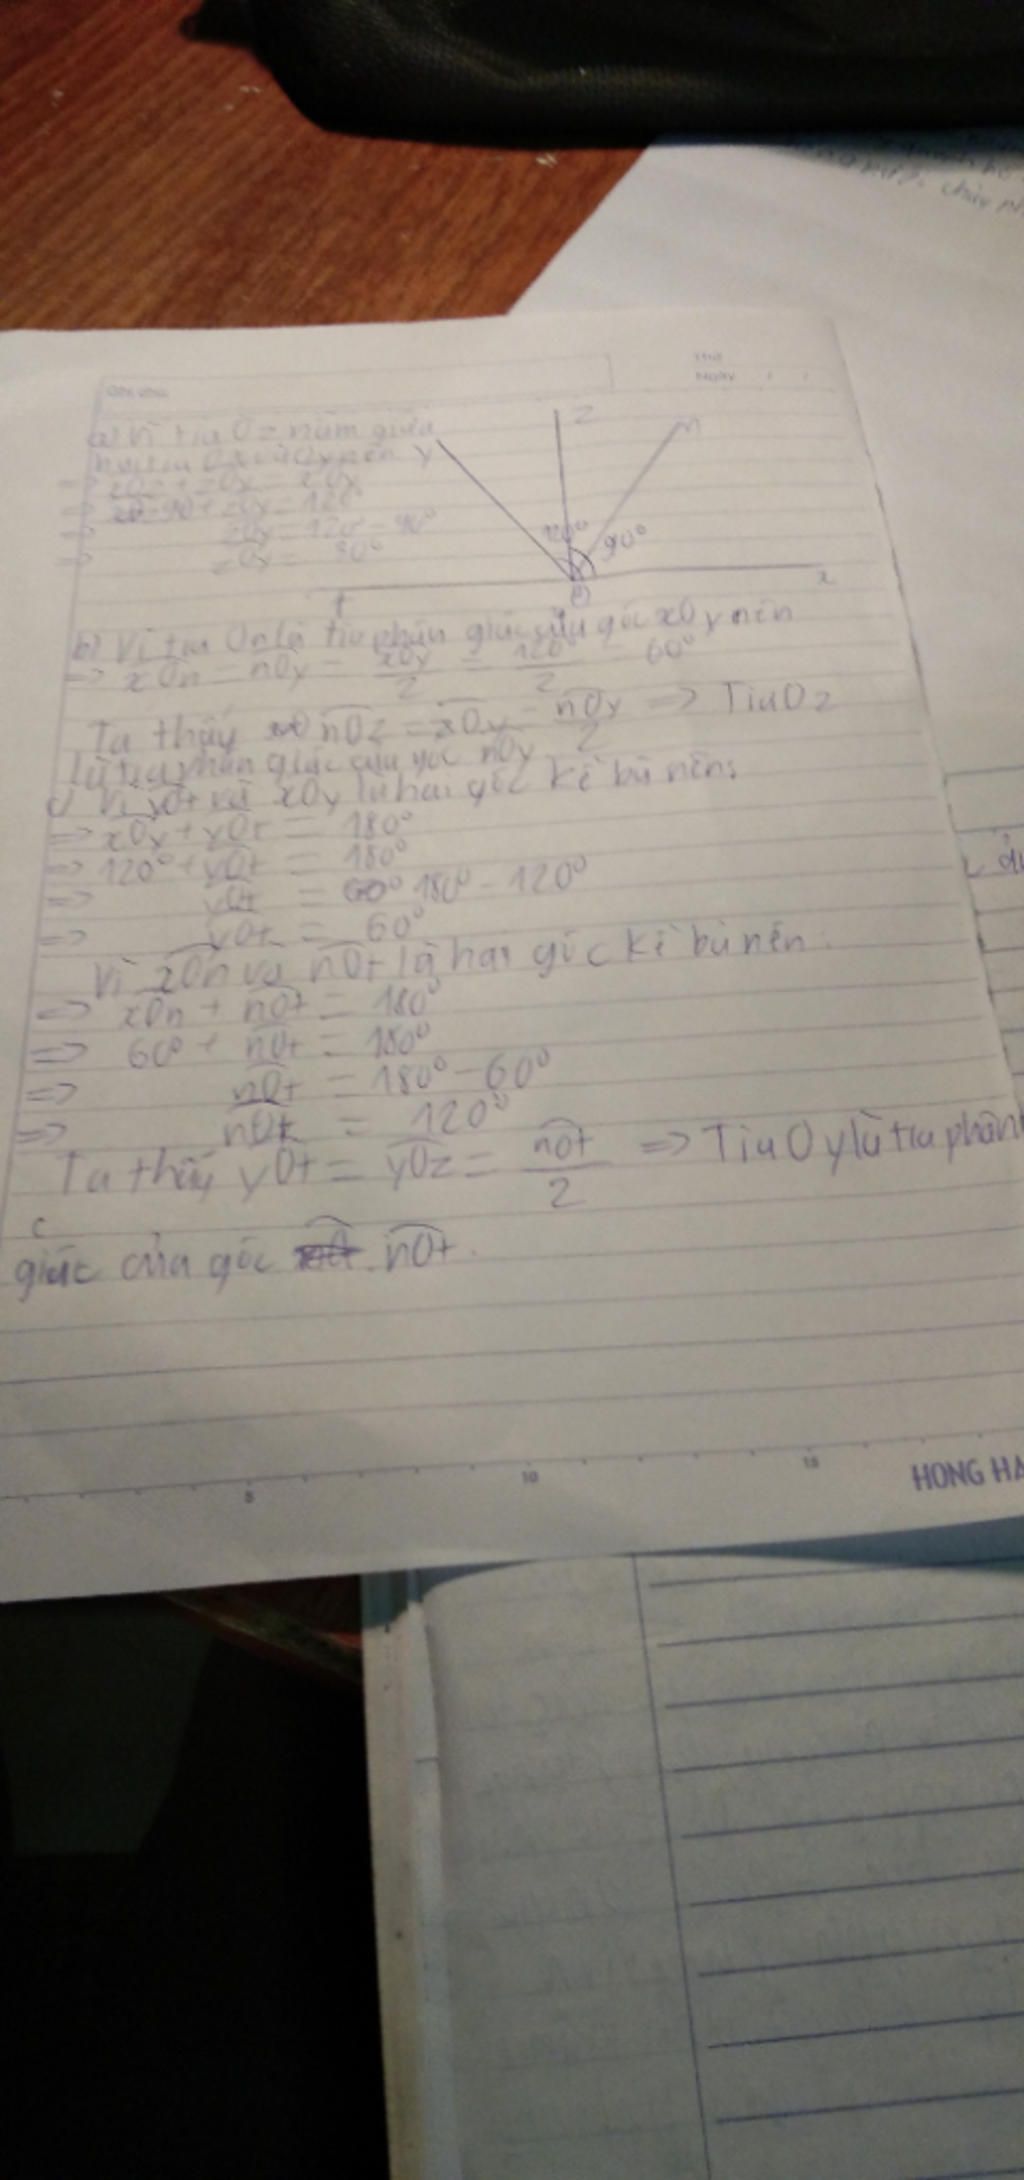 a) Vì tia Oz nằm giữa
hai tia Ox và Oy nên
=> xOz + zOy = xOy
=> 90 + zOy = 120°
=> zOy = 120° - 90°
=> zOy = 30°
y
z
n
120°
90°
t
O
x
b) Vì tia On là tia phân giác của góc xOy nên
=> xOn = nOy = xOy/2 = 120°/2 = 60°
Ta thấy nOz = zOy = nOy/2 => Tia Oz
là tia phân giác của góc nOy
c) Vì yOt và xOy là hai góc kề bù nên:
=> xOy + yOt = 180°
=> 120° + yOt = 180°
=> yOt = 180° - 120°
=> yOt = 60°
Vì xOn và nOt là hai góc kề bù nên
=> xOn + nOt = 180°
=> 60° + nOt = 180°
=> nOt = 180° - 60°
=> nOt = 120°
Ta thấy yOt = yOz = nOt/2 => Tia Oy là tia phân
giác của góc nOt.
5
10
15
HONG HA